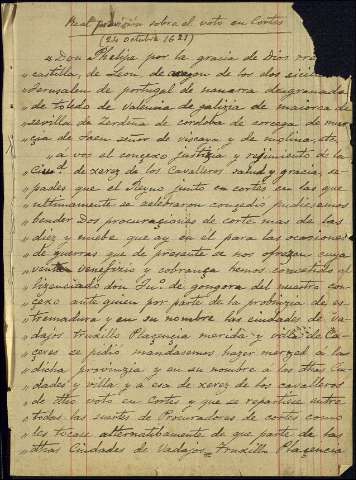 Real provisión sobre el voto en Cortes
(24 octubre 1621)
" Don Phelipe por la gracia de Dios
castilla, de Leon, de aragon de las dos
Jerusalen de portugal de navarra de granada
" de toledo de Valencia de galizia de maiorca de
sevilla de Zerdeña de cordoba de corcega de mur
" cia de Jaen señor de viscaya y de molina etc.
" a vos el conçexo Justizia y rejimiento de la
" Ciud. de xerez de los Cavalleros salud y gracia, se
" pades que el Reyno junto en cortes en las que
" ultimamente se celibraron conzedio pudiesemos
" bender Dos procuraçiones de corte mas de las
" diez y nuebe que ay en el para las ocasiones
" de guerras que de presente se nos ofrezen cuya
" venta benefizio y cobrança hemos cometido al
" lizenciado don Juº de gongora del nuestro con
" çexo ante quien por parte de la probinzia de es
" tremadura y en su nombre las ciudades de Va
" dajos truxillo Plaçençia merida y villa de Ca
" çeres se pedio mandasemos hazer merzed a la
" dicha provinzia y en su nombre a las dhas Ciu
" dades y villa y a esa de xerez de los caballeros
" de dho voto en Cortes y que se repartise entre
" todas las suertes de Procuradores de cortes como
" les tocase alternatibamente de que parte de las
" dhas Ciudades de Vadajos = Truxillo Plaçencia